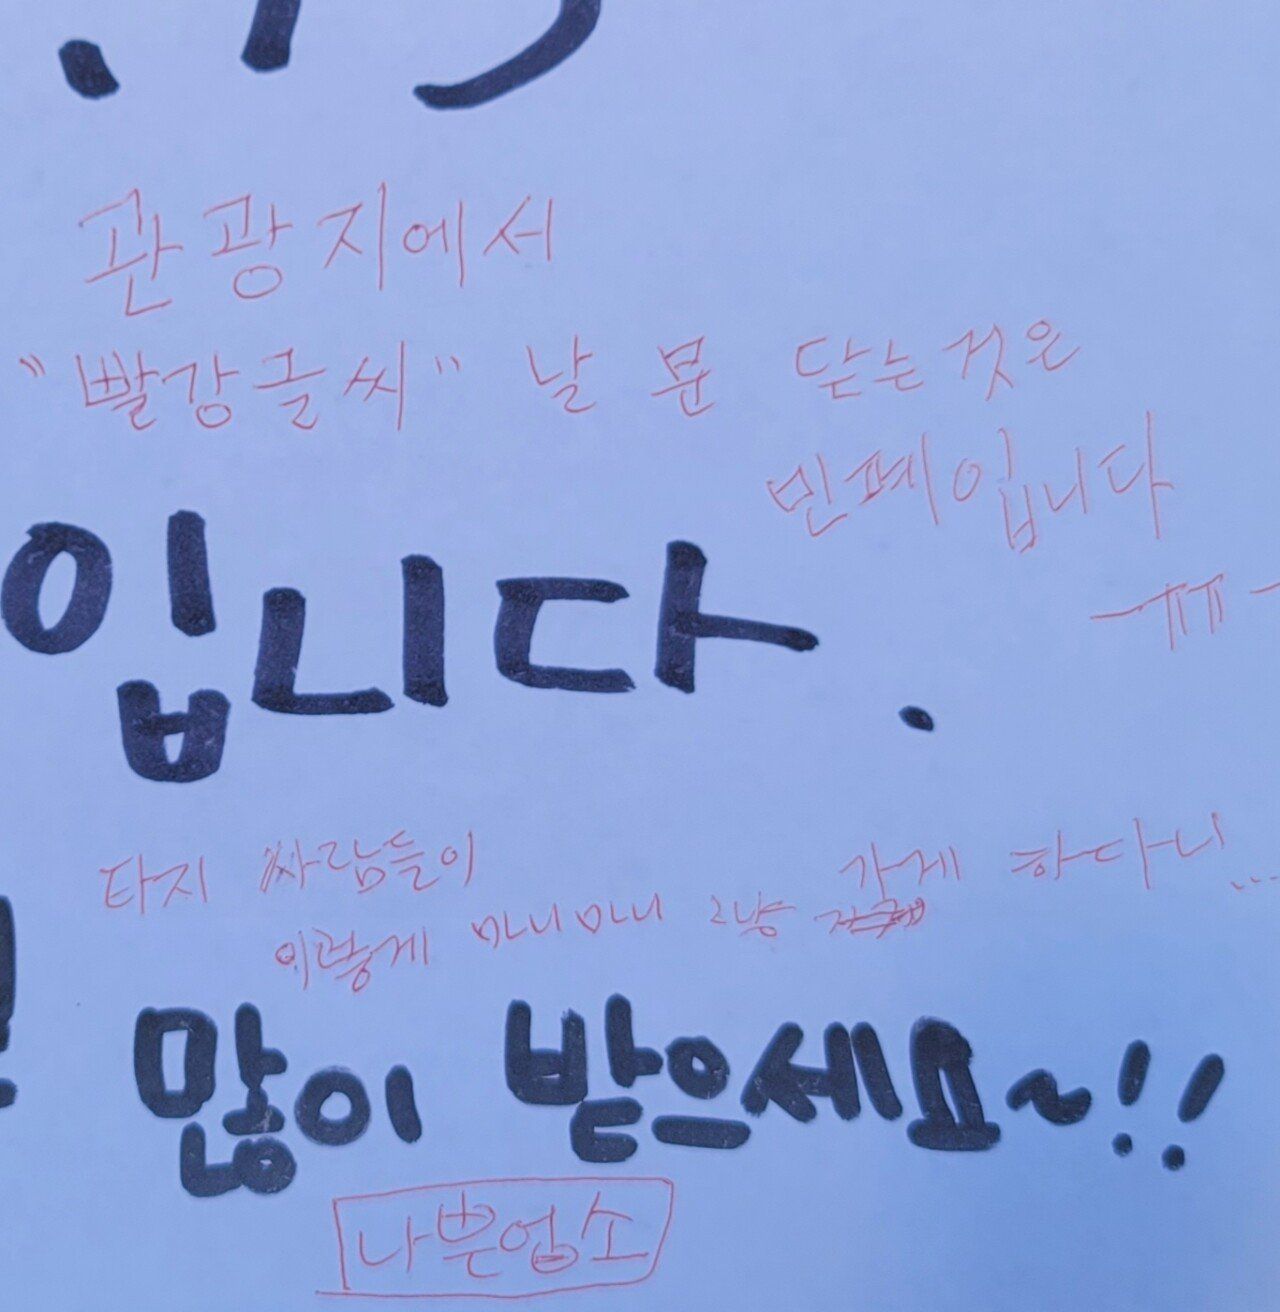 관광지에서
"빨강글씨" 날 문 닫는것은
민폐입니다
ㅡㅠㅠㅡ
입니다.
타지 싸람들이
이렇게 마니마니 그냥 가게 하다니...
많이 받으세요~!!
나쁜업소